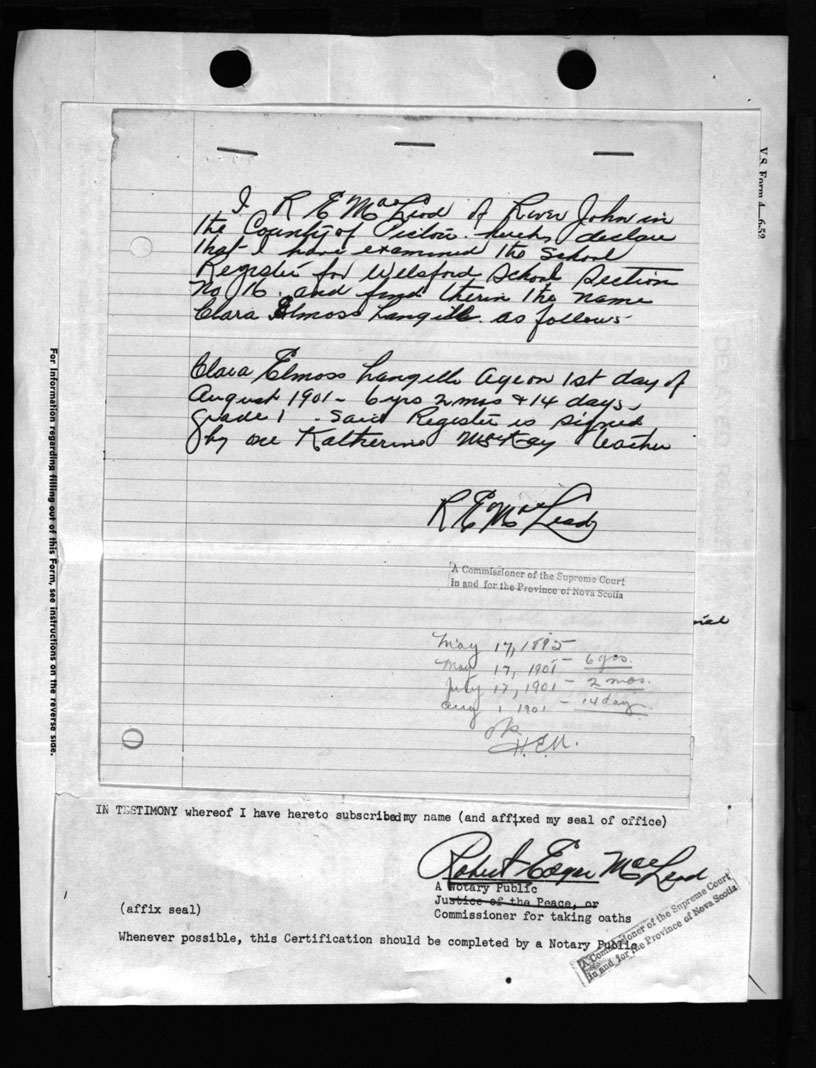 V.S. Form 4—6-52
I R E MacLeod of River John in
the County of Pictou hereby declare
that I have examined the School
Register for Welsford School Section
No 16. and find therin the name
Clara Elmoss Langille. as follows-
Clara Elmoss Langille age on 1st day of
August 1901 - 6 yrs 2 mos & 14 days,
grade 1. Said Register is signed
by one Katherine McKay teacher
R E MacLeod
A Commissioner of the Supreme Court
in and for the Province of Nova Scotia
May 17, 1895
May 17, 1901 - 6 yrs.
July 17, 1901 - 2 mos.
Aug 1 1901 - 14 days
ok
H.E.M.
For information regarding filling out of this Form, see instructions on the reverse side.
IN TESTIMONY whereof I have hereto subscribed my name (and affixed my seal of office)
Robert Edgar MacLeod
A Notary Public
Justice of the Peace, or
(affix seal)
Commissioner for taking oaths
Whenever possible, this Certification should be completed by a Notary Public
A Commissioner of the Supreme Court
in and for the Province of Nova Scotia